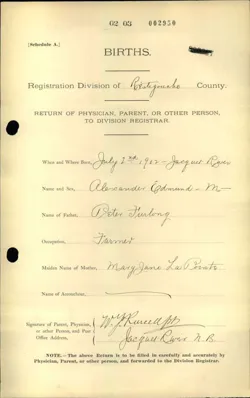 62 63 002950
[Schedule A.]
BIRTHS.
Registration Division of Restigouche County.
RETURN OF PHYSICIAN, PARENT, OR OTHER PERSON,
TO DIVISION REGISTRAR.
When and Where Born, July 2nd 1902 - Jacquet River
Name and Sex, Alexander Edmund - M -
Name of Father, Peter Furlong
Occupation, Farmer
Maiden Name of Mother, Mary Jane La Pointe
Name of Accoucheur,
Signature of Parent, Physician,
or other Person, and Post
Office Address,
Jacquet River N.B.
NOTE.—The above Return is to be filled in carefully and accurately by
Physician, Parent, or other person, and forwarded to the Division Registrar.